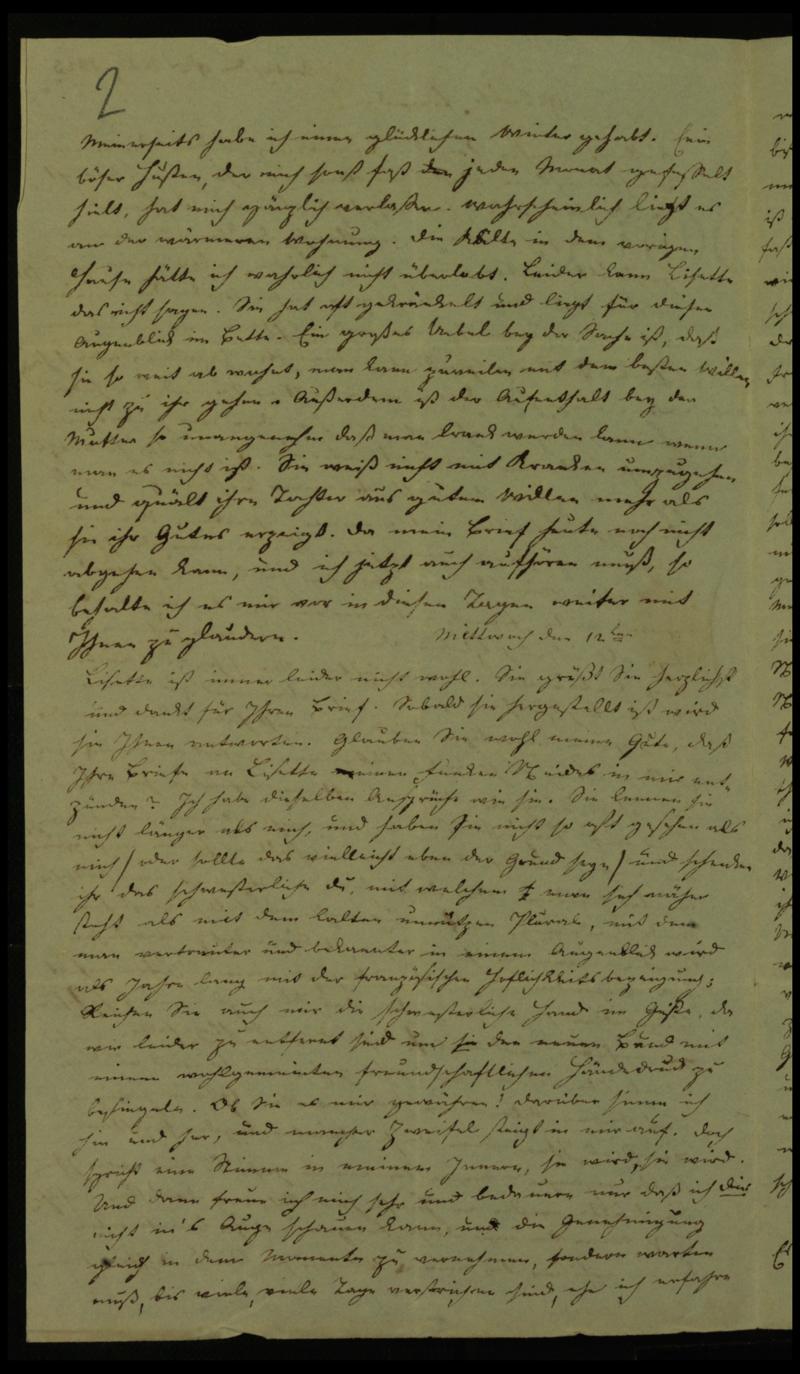 2
Meinerseits habe ich einen glücklichen Winter gehabt. Ein
böser Husten, der mich sonst fast jeden Monat gefesselt
hielt, hat mich gänzlich verlassen. Wahrscheinlich liegt es
an der wärmeren Wohnung. Die Kälte in dem vorigen
Hause hätte ich wahrlich nicht überlebt. Leider kann Lisette
das nicht sagen. Sie hat oft gekränkelt und liegt für diesen
Augenblick im Bette. Ein großes Uebel bey der Sache ist, daß
sie so weit ab wohnt, man kann zuweilen mit dem besten Willen
nicht zu ihr gehen. Außerdem ist der Aufenthalt bey der
Mutter so unangenehm daß man krank werden kann wenn
man es nicht ist. Sie weiß nicht mit Kranken umzugehen
und quält ihre Tochter aus gutem Willen mehr als
sie ihr Gutes erzeigt. Da mein Brief heute noch nicht
abgehen kann, und ich jetzt auch aufhören muß, so
behalte ich es mir vor in diesen Tagen weiter mit
Ihnen zu plaudern. Mittwoch den 12ten
Lisette ist immer leider nicht wohl. Sie grüßt Sie herzlichst
und dankt für Ihren Brief. Sobald sie hergestellt ist wird
sie Ihnen antworten. Glauben Sie wohl meine Gute, daß
Ihre Briefe an Lisette einen Funken Neides in mir ent-
zünden? Ich habe dieselben Ansprüche wie sie. Sie kennen sie
nicht länger als mich, und haben sie nicht so oft gesehen als
mich (oder sollte das vielleicht eben der Grund seyn) und schenken
ihr das schwesterliche du, mit welchem man sich näher
steht als mit dem kalten unnützen Plural, mit dem
man vertrauter und bekannter in einem Augenblick wird
als Jahre lang mit der französischen Höflichkeitsbezeugung;
Reichen Sie auch mir die schwesterliche Hand im Geiste, da
wir leider zu entfernt sind um den neuen Bund mit
einem wohlgemeinten freundschaftlichen Händedruck zu
besiegeln. Ob Sie es mir gewähren! darüber sinne ich
hin und her, und mancher Zweifel steigt in mir auf. Doch
spricht eine Stimme in meinem Innern, sie wird, sie wird.
Und dann freue ich mich sehr und bedauere nur daß ich dir
nicht in's Auge schauen kann, und die Genehmigung
gleich in dem Momente zu vernehmen, sondern warten
muß, bis viele, viele Tage verstrichen sind, ehe ich erfahre